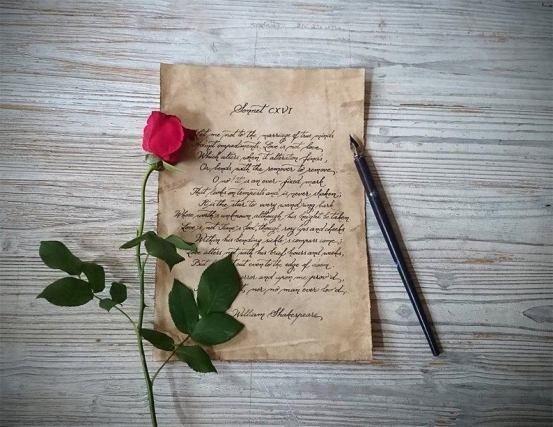 Sonnet CXVI
Let me not to the marriage of true minds
impediments. Love is not love,
Which alters when it alteration finds,
Or bends with the remover to remove;
O no! it is an ever-fixed mark,
That looks on tempests and is never shaken;
It is the star to every wand'ring bark
Whose worth's unknown although his height be taken
Love is not Time's fool, though rosy lips and cheeks
Within his bending sickle's compass come;
Love alters not with his brief hours and weeks,
But out even to the edge of doom
error and upon me prov'd,
, nor no man ever lov'd.
William Shakespeare